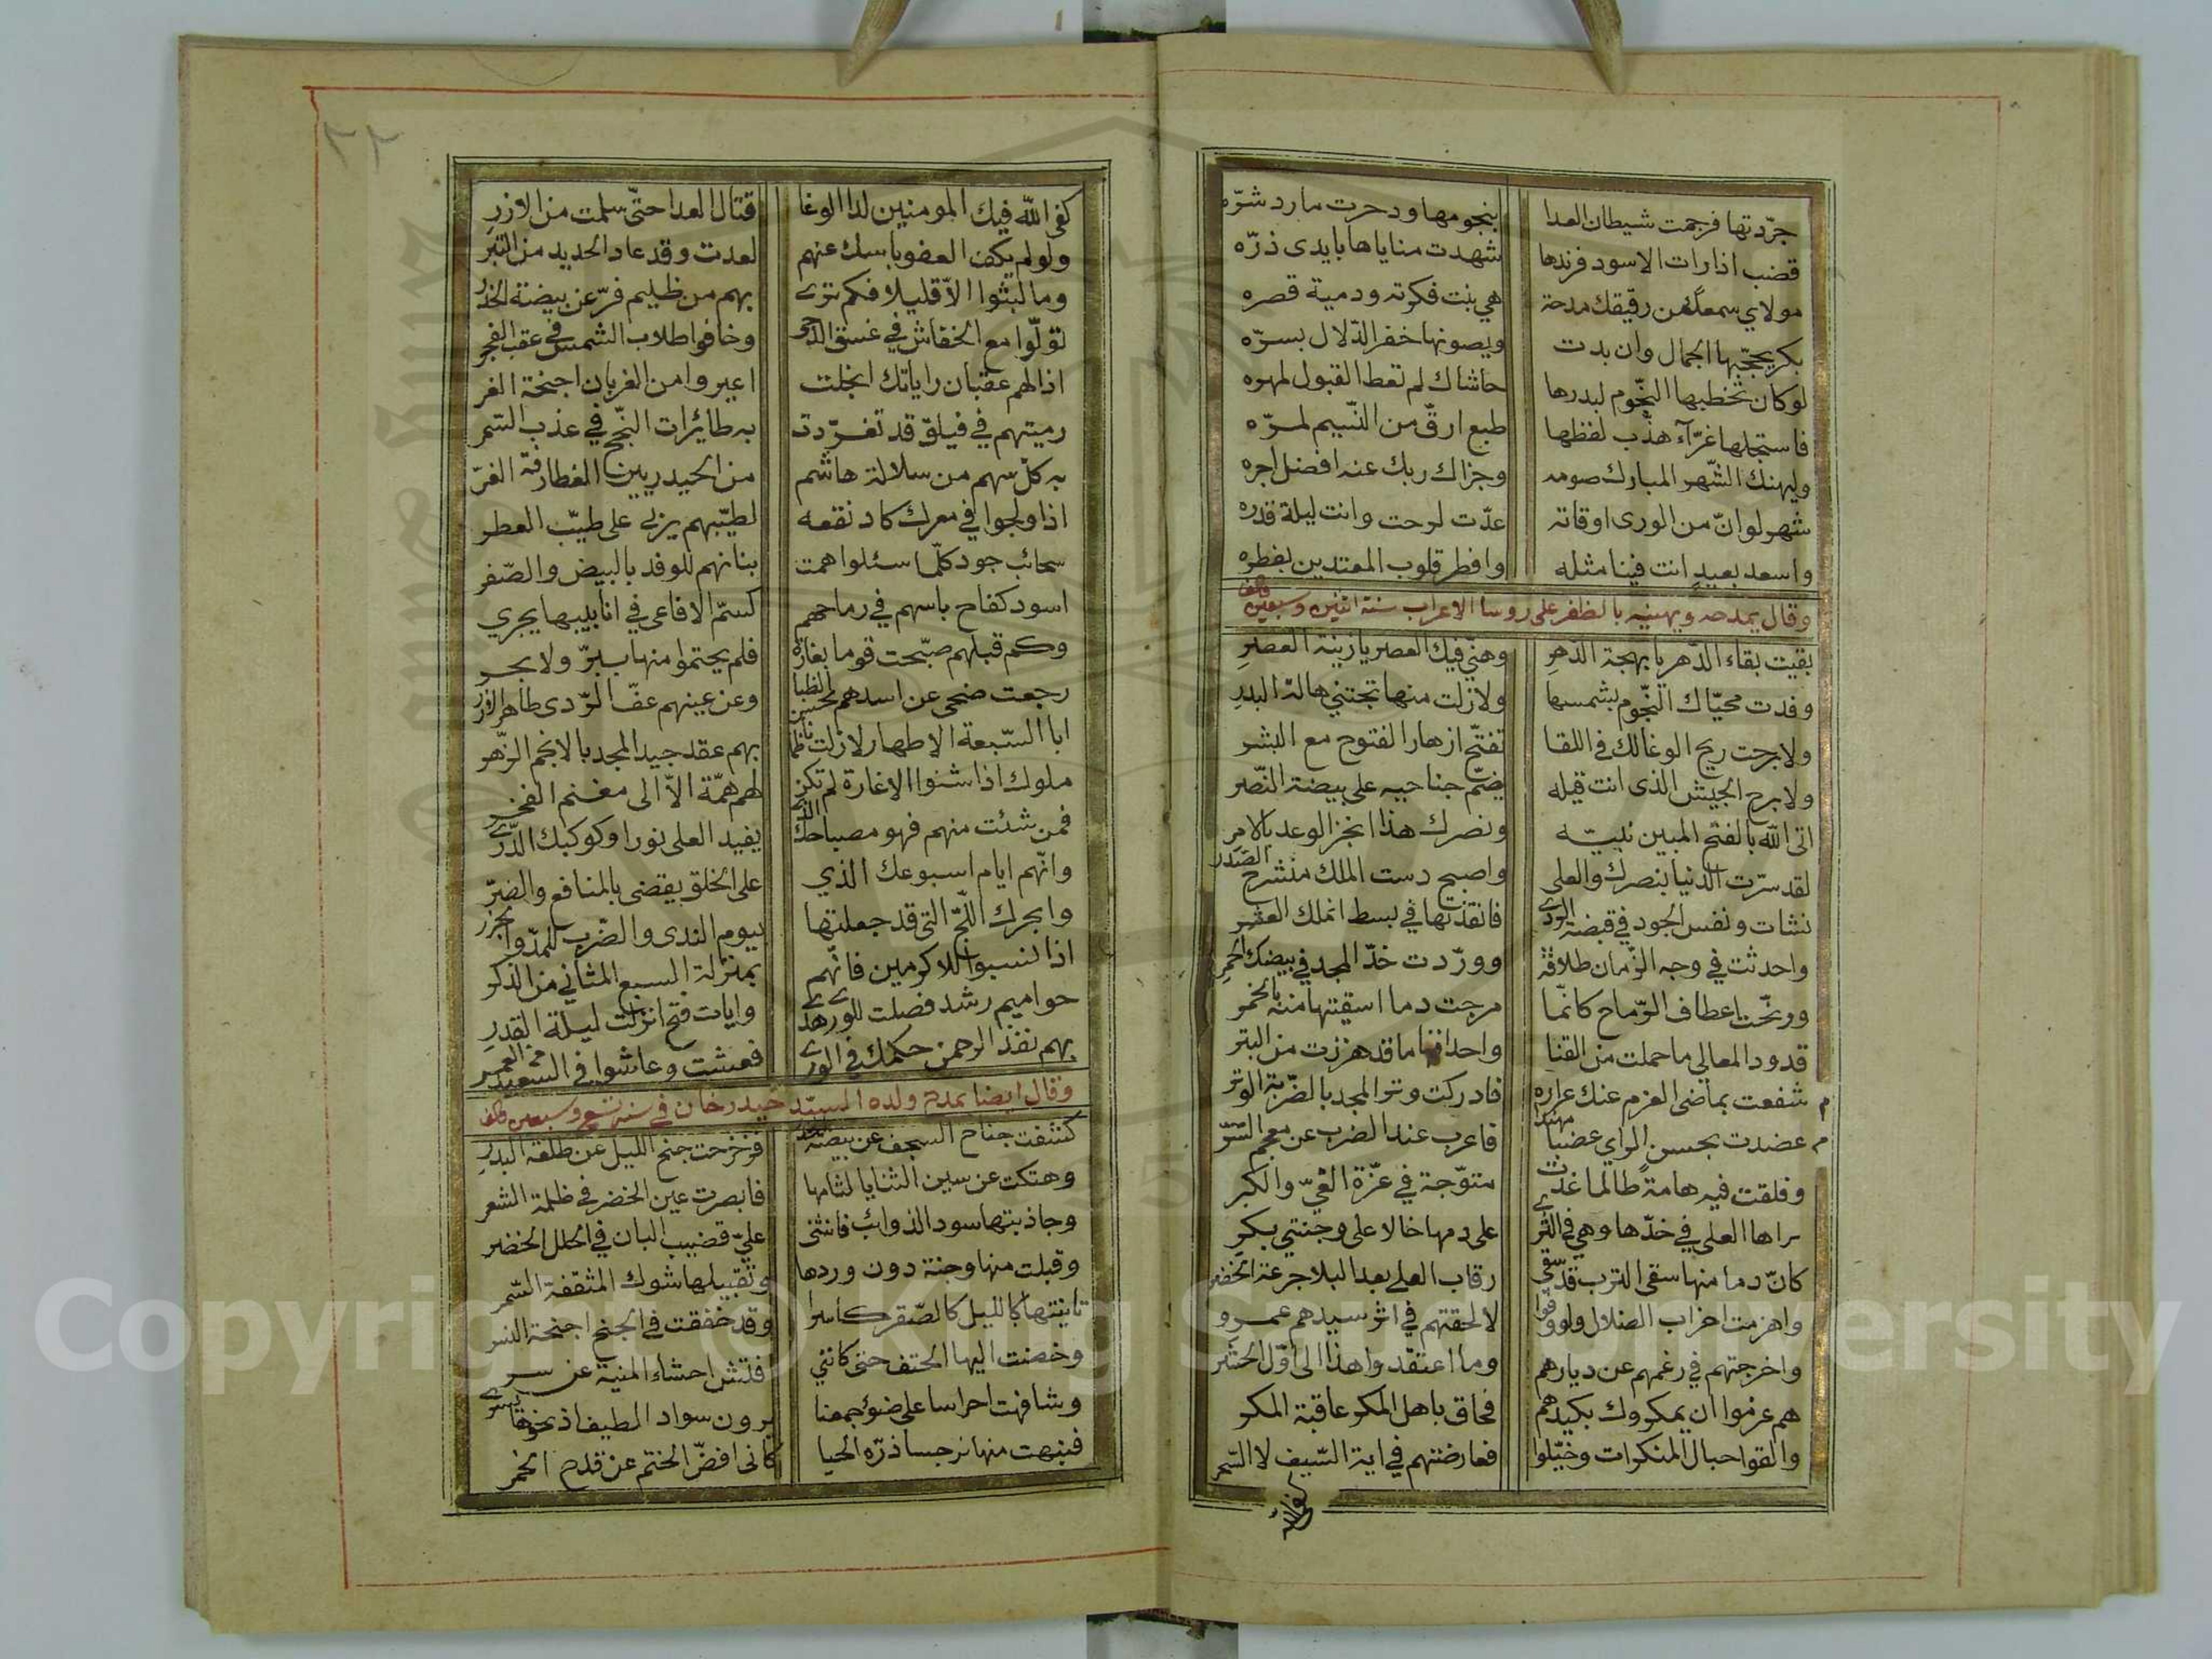 جرّدتها فرجمت شيطان العدا بنجومها ودحرت مارد شرّه
قضب اذا رات الاسود فرندها شهدت مناياها بايدى ذرّه
مولاي سمعا من رقيقك مدحة هي بنت فكرته ودمية قصره
بكر يحجّبها الجمال وان بدت ويصونها خفر الدّلال بسرّه
لوكان تخطبها النّجوم لبدرها حاشاك لم تعط القبول لمهره
فاستجلها غرّآء هذّب لفظها طبع ارقّ من النّسيم لمرّه
وليهنك الشّهر المبارك صومه وجزاك ربك عنه افضل اجره
شهر لو انّ من الورى اوقاته عدّت لرحت وانت ليلة قدره
واسعد بعيدٍ انت فينا مثله وافطر قلوب المعتدين بفطره
وقال يمدحه ويهنيه بالظفر على روسا الاعراب سنة اثنين وسبعين والف
بقيت بقاء الدّهر يا بهجة الدّهرِ وهنّي فيك العصر يا زينة العصرِ
وفدت محيّاك النّجوم بشمسها ولازلت منها تجتني هالة البدرِ
ولاجرت ريح الوغا لك في اللقا تفتّح ازهار الفتوح مع البشر
ولابرح الجيش الذى انت قيله يضمّ جناحيه على بيضة النّصر
اتى الله بالفتح المبين نبيّه ونصرك هذا انجز الوعد بالامر
لقد سرّت الدّنيا بنصرك والعلى واصبح دست الملك منشرح الصّدر
نشات ونفس الجود في قبضة الردى فانقذتها في بسط انملك العشر
واحدثت في وجه الزّمان طلاقة وورّدت خدّ المجد في بيضك الحمر
ورنّحت اعطاف الرّماح كانّما مزجت دما اسقيتها منه بالخمر
قدود المعالي ما حملت من القنا واحداقها ما قد هززت من البتر
شفعت بماضى العزم عنك عراره فادركت وتر المجد بالضّربة الوتر
عضدت بحسن الراي عضبا مهندا فاعرب عند الضرب عن معجم السّرّ
وفلقت فيه هامةً طالما غدت متوّجة في عزّة الغيّ والكبر
يراها العلى في خدّها وهي في الثرى على دمها خالا على وجنتي بكر
كانّ دما منها سقى الترب قد سقى رقاب العلى بعد البلا جرعة الخضر
واهزمت احزاب الضلال ولو وقوا لالحقتهم في اثر سيدهم عمرو
واخرجتهم في رغمهم عن ديارهم وما اعتقدوا هذا الى اوّل الحشر
هم عزموا ان يمكروك بكيدهم فحاق باهل المكر عاقبة المكر
والقوا حبال المنكرات وخيّلوا فعارضتهم في اية السّيف لا السّحر
كفى الله
٢٢
كفى الله فيك المومنين لدا الوغا قتال العدا حتّى سلمت من الازر
ولولم يكف العفو باسك عنهم لعدت وقد عاد الحديد من التبر
وما لبثوا الاّ قليلا فكم ترى بهم من ظليم فرّ عن بيضة الخدر
تولّوا مع الخفاش في غسق الدّجى وخافوا طلاب الشمس في عقب الفجر
اذا لهم عقبان راياتك انجلت اعيروا من الغربان اجنحة الفر
رميتهم في فيلق قد تغرّدت به طائرات النّجح في عذب السّمر
به كل سهم من سلالة هاشم من الحيدريين الغطارفة الغرّ
اذا ولجوا في معرك كاد نقعه لطيبهم يزرى على طيّب العطر
سحائب جود كلّما سئلوا همت بنانهم للوفد بالبيض والصّفر
اسود كفاح باسهم في رماحهم كسمّ الافاعى في انابيبها يجري
وكم قبلهم صبّحت قوما بغارة فلم يحتموا منها ببرّ ولا بحر
رجعت ضحى عن اسدهم محسن الظبا وعن عينهم عفّ الرّدى طاهر الازر
ابا السّبعة الاطهار لازلت ناظما بهم عقد جيد المجد بالانجم الزّهر
ملوك اذا شنوا الاغارة لم تكن لهم همّة الاّ الى مغنم الفخر
فمن شئت منهم فهو مصباحك الذى يفيد العلى نورا وكوكبك الدّرّي
وانّهم ايام اسبوعك الذي على الخلق يقضى بالمنافع والضرّ
وابحرك اللّجّ التى قد جعلتها ليوم الندى والضّرب للمدّ والجزر
اذا نسبوا للاكرمين فانّهم بمنزلة السبع المثاني من الذكر
حواميم رشد فصلت للورى هدى وايات فتح انزلت ليلة القدر
بهم نفذ الرحمن حكمك في الورى فعشت وعاشوا في السّعيد من العمر
وقال ايضا يمدح ولده السيّد حيدر خان في سنة تسع وسبعين والف
كشفت جناح السجف عن بيضة الخدر فزخزحت جنح الليل عن طلعة البدرِ
وهتكت عن سين الثنايا لثامها فابصرت عين الخضر في ظلمة الشعر
وجاذبتها سود الذوائب فانثنى عليّ قضيب البان في الحلل الخضر
وقبلت منها وجنة دون وردها وتقبيلها شوك المثقفة السّمر
تاينتها بالليل كالصّقر كاسرا وقد خفقت في الجنح اجنحة النسر
وخضت اليها الحتف حتى كانني افتّش احشاء المنية عن سر
وشافهت احراسا على ضوئ جمعنا يرون سواد الطيف اذ نحوها يسرى
فنبهت منها نرجسا ذرّه الحيا كانى افضّ الختم عن قدح الخمر
Copyright © King Saud University